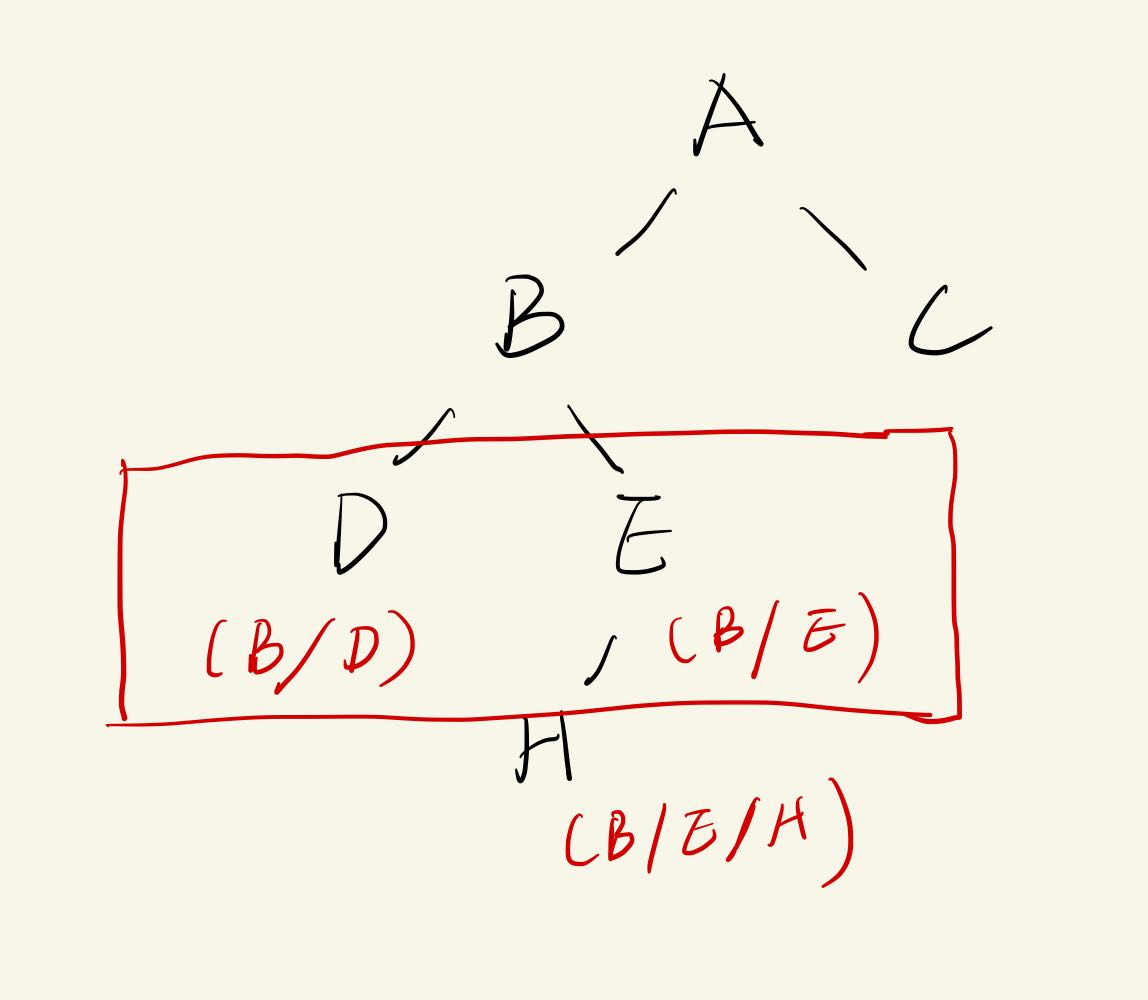 A
B C
D E
(B/D) (B/E)
H
(B/E/H)